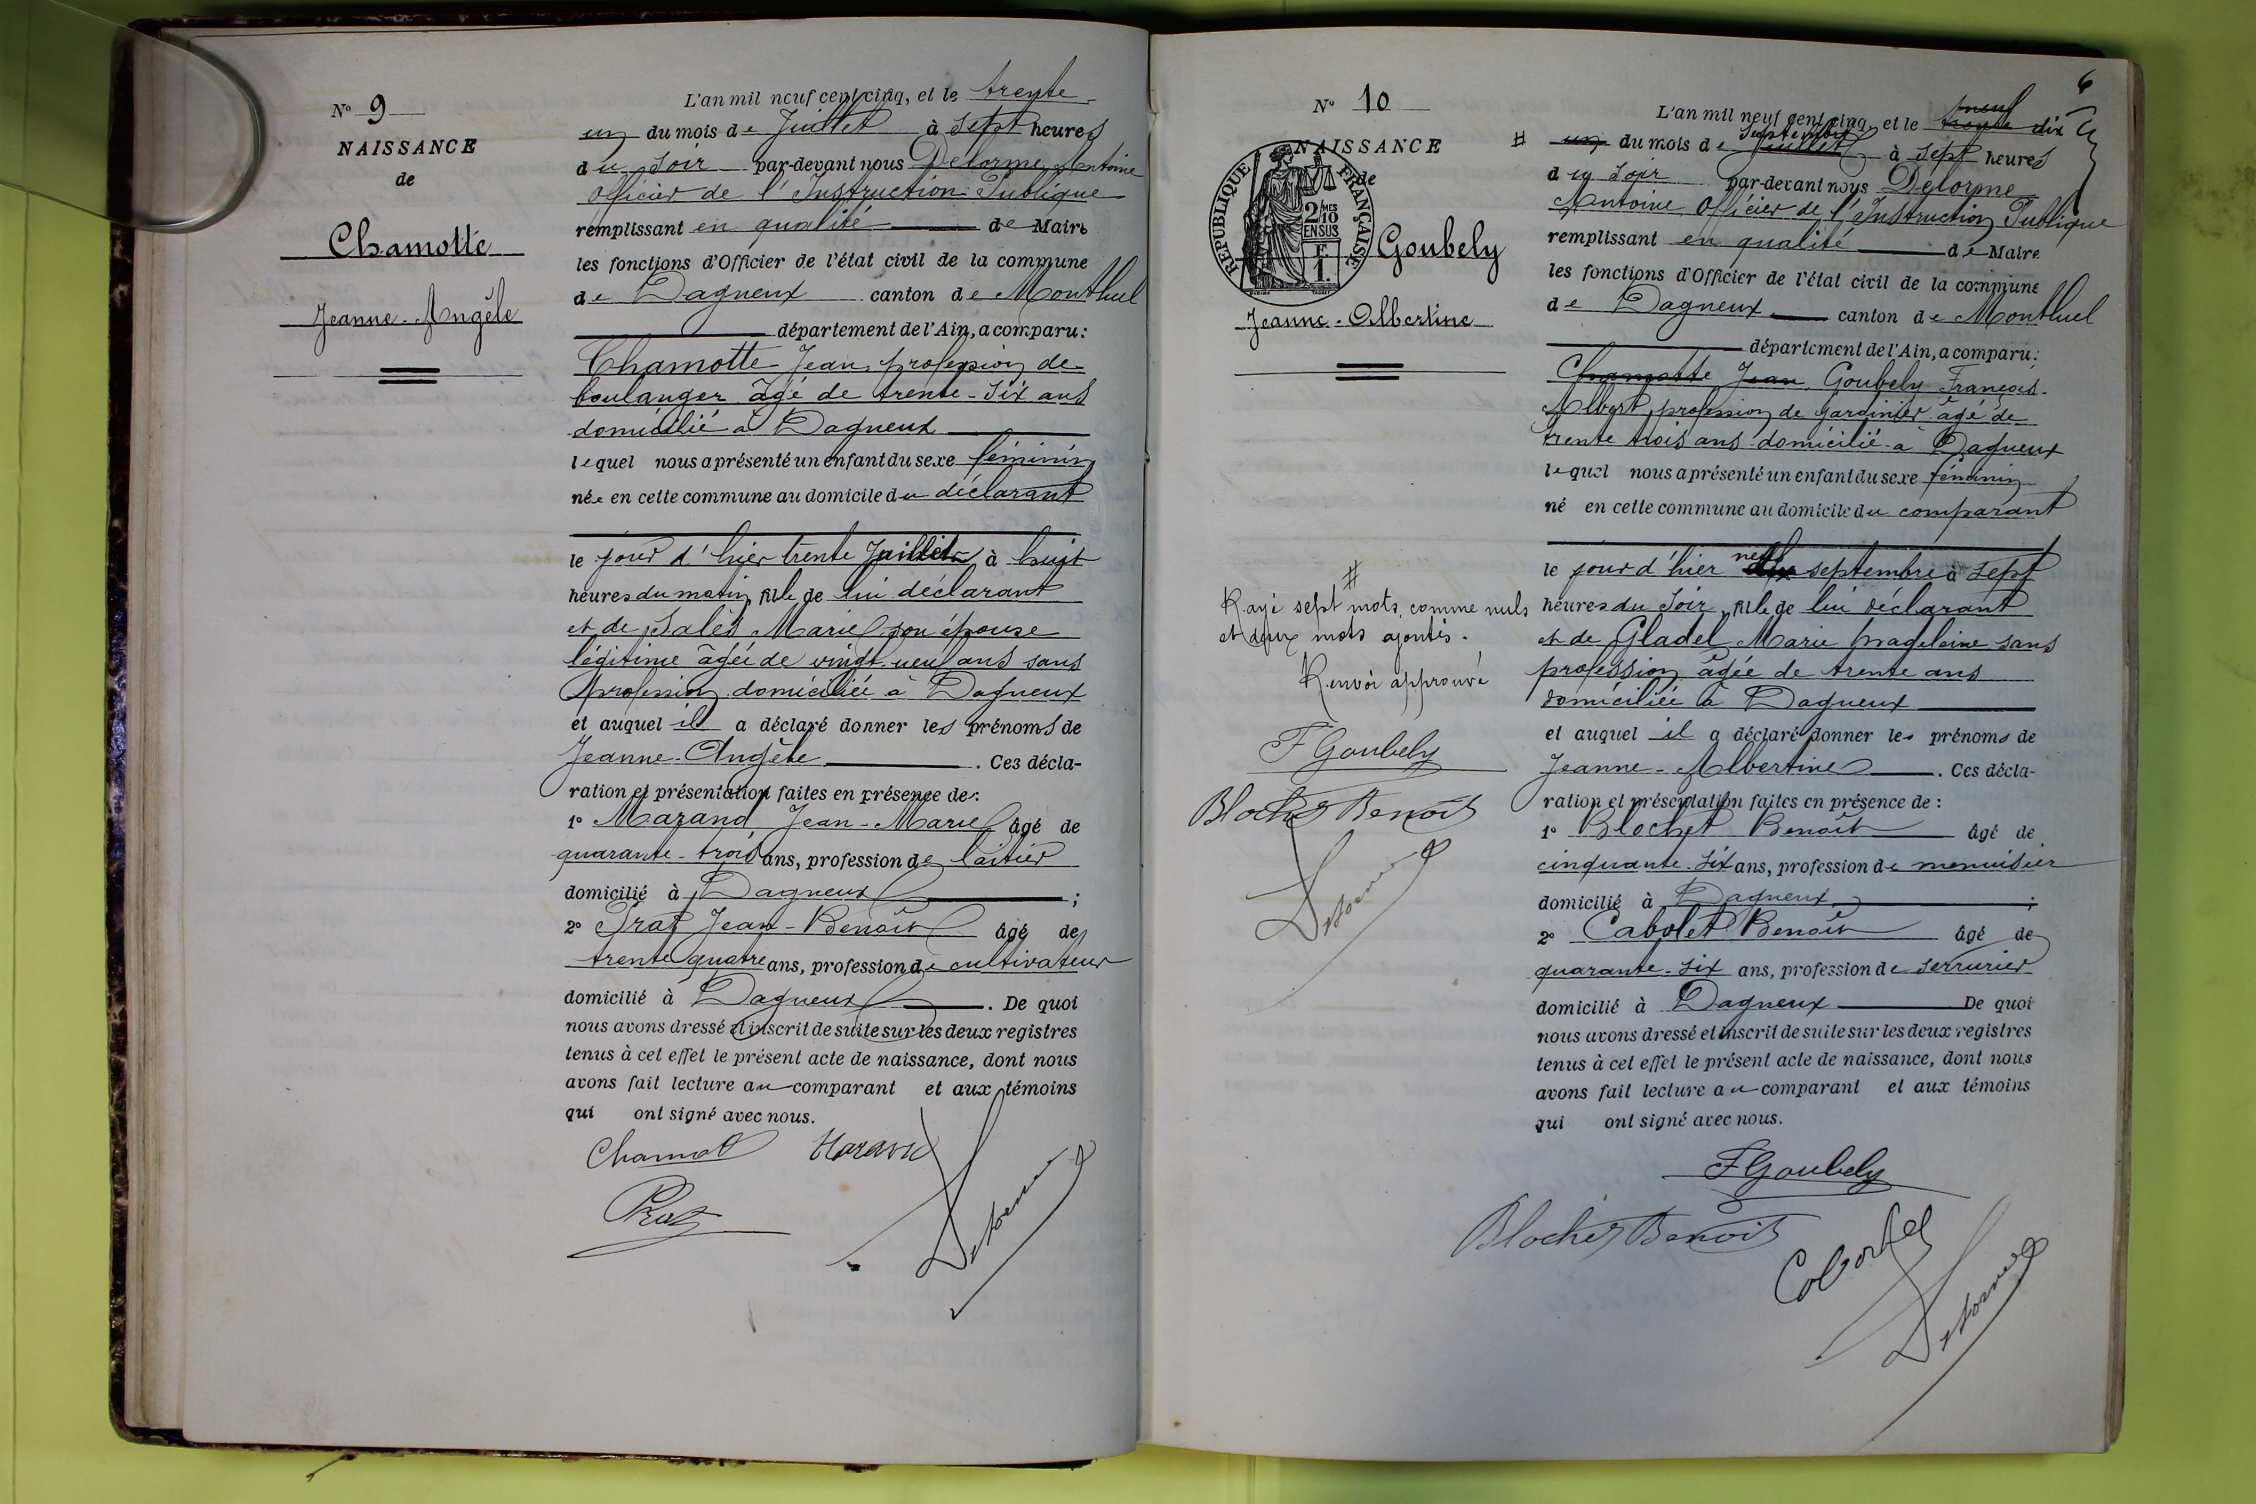 N° 9
NAISSANCE
de
Chamotte
Jeanne-Angèle
L'an mil neuf cent cinq, et le trente
un du mois de Juillet à sept heures
du soir par-devant nous Delorme Antoine
Officier de l'Instruction Publique
remplissant en qualité de Maire
les fonctions d'Officier de l'état civil de la commune
de Dagneux canton de Montluel
département de l'Ain, a comparu:
Chamotte Jean, profession de
boulanger âgé de trente-six ans
domicilié à Dagneux
lequel nous a présenté un enfant du sexe féminin
née en cette commune au domicile du déclarant
le jour d'hier trente Juillet à huit
heures du matin, fille de lui déclarant
et de Salès Marie son épouse
légitime âgée de vingt-neuf ans sans
profession domiciliée à Dagneux
et auquel il a déclaré donner les prénoms de
Jeanne-Angèle. Ces décla-
ration et présentation faites en présence de:
1° Marand Jean-Marie âgé de
quarante-trois ans, profession de laitier
domicilié à Dagneux;
2° Prat Jean-Benoît âgé de
trente quatre ans, profession de cultivateur
domicilié à Dagneux. De quoi
nous avons dressé et inscrit de suite sur les deux registres
tenus à cet effet le présent acte de naissance, dont nous
avons fait lecture au comparant et aux témoins
qui ont signé avec nous.
Chamot Marand
Prat
Delorme
6
N° 10
NAISSANCE
de
REPUBLIQUE FRANÇAISE
2/10 MES
EN SUS
F
1.
Goubely
Jeanne-Albertine
L'an mil neuf cent cinq, et le neuf trente dix
# un du mois de septembre Juillet à sept heures
du soir par-devant nous Delorme
Antoine Officier de l'Instruction Publique
remplissant en qualité de Maire
les fonctions d'Officier de l'état civil de la commune
de Dagneux canton de Montluel
département de l'Ain, a comparu:
Chamotte Jean Goubely François
Albert, profession de jardinier âgé de
trente trois ans domicilié à Dagneux
lequel nous a présenté un enfant du sexe féminin
né en cette commune au domicile du comparant
le jour d'hier neuf dix septembre à sept
heures du soir, fille de lui déclarant
et de Gladel Marie Magdeleine sans
profession âgée de trente ans
domiciliée à Dagneux
et auquel il a déclaré donner les prénoms de
Jeanne-Albertine. Ces décla-
ration et présentation faites en présence de:
1° Blochet Benoît âgé de
cinquante-six ans, profession de menuisier
domicilié à Dagneux;
2° Cabolet Benoît âgé de
quarante-six ans, profession de serrurier
domicilié à Dagneux De quoi
nous avons dressé et inscrit de suite sur les deux registres
tenus à cet effet le présent acte de naissance, dont nous
avons fait lecture au comparant et aux témoins
qui ont signé avec nous.
#
Rayé sept mots, comme nuls
et deux mots ajoutés.
Renvoi approuvé
F Goubely
Blochet Benoit
Delorme
F Goubely
Blochet Benoit
Delorme